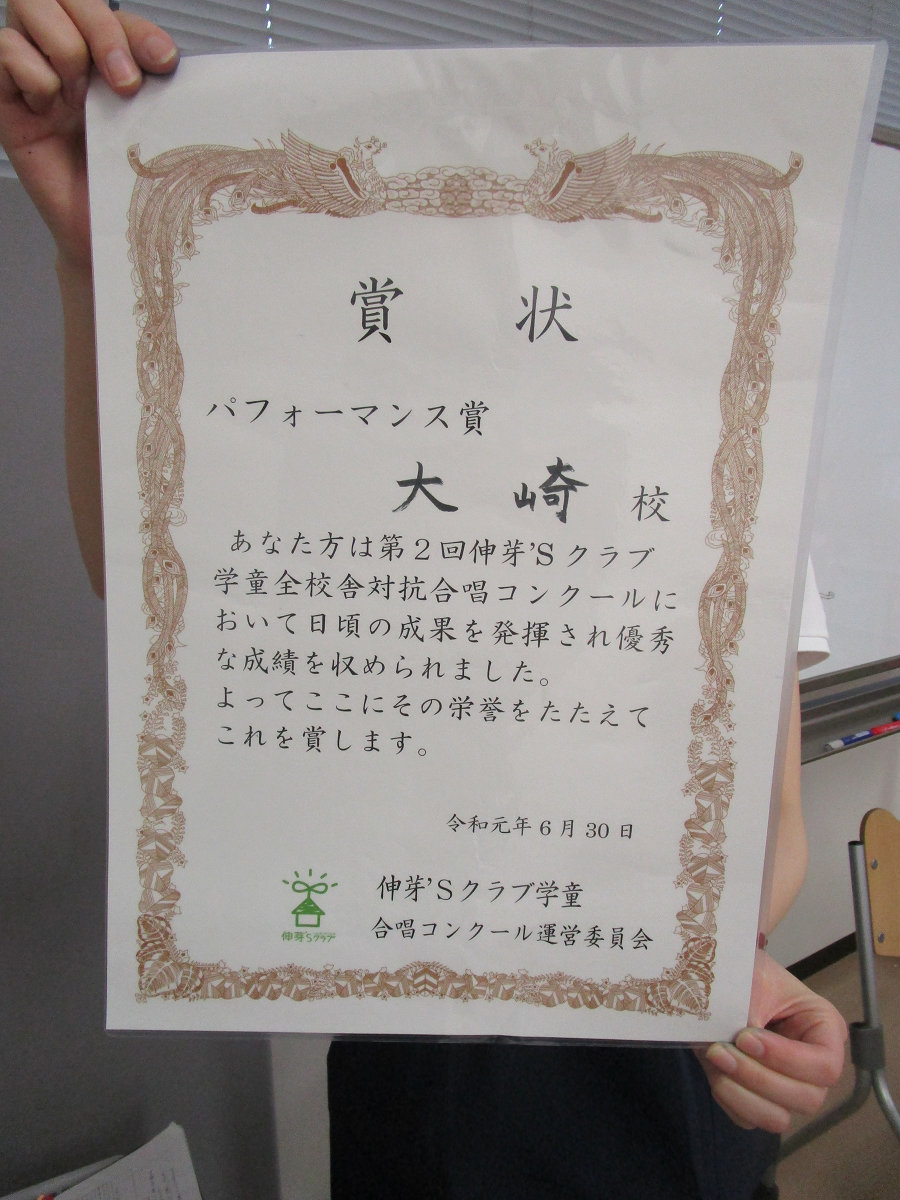 賞 状
パフォーマンス賞
大 崎 校
あなた方は第2回伸芽'Sクラブ
学童全校舎対抗合唱コンクールに
おいて日頃の成果を発揮され優秀
な成績を収められました。
よってここにその栄誉をたたえて
これを賞します。
令和元年6月30日
伸芽'Sクラブ学童
合唱コンクール運営委員会
伸芽'Sクラブ